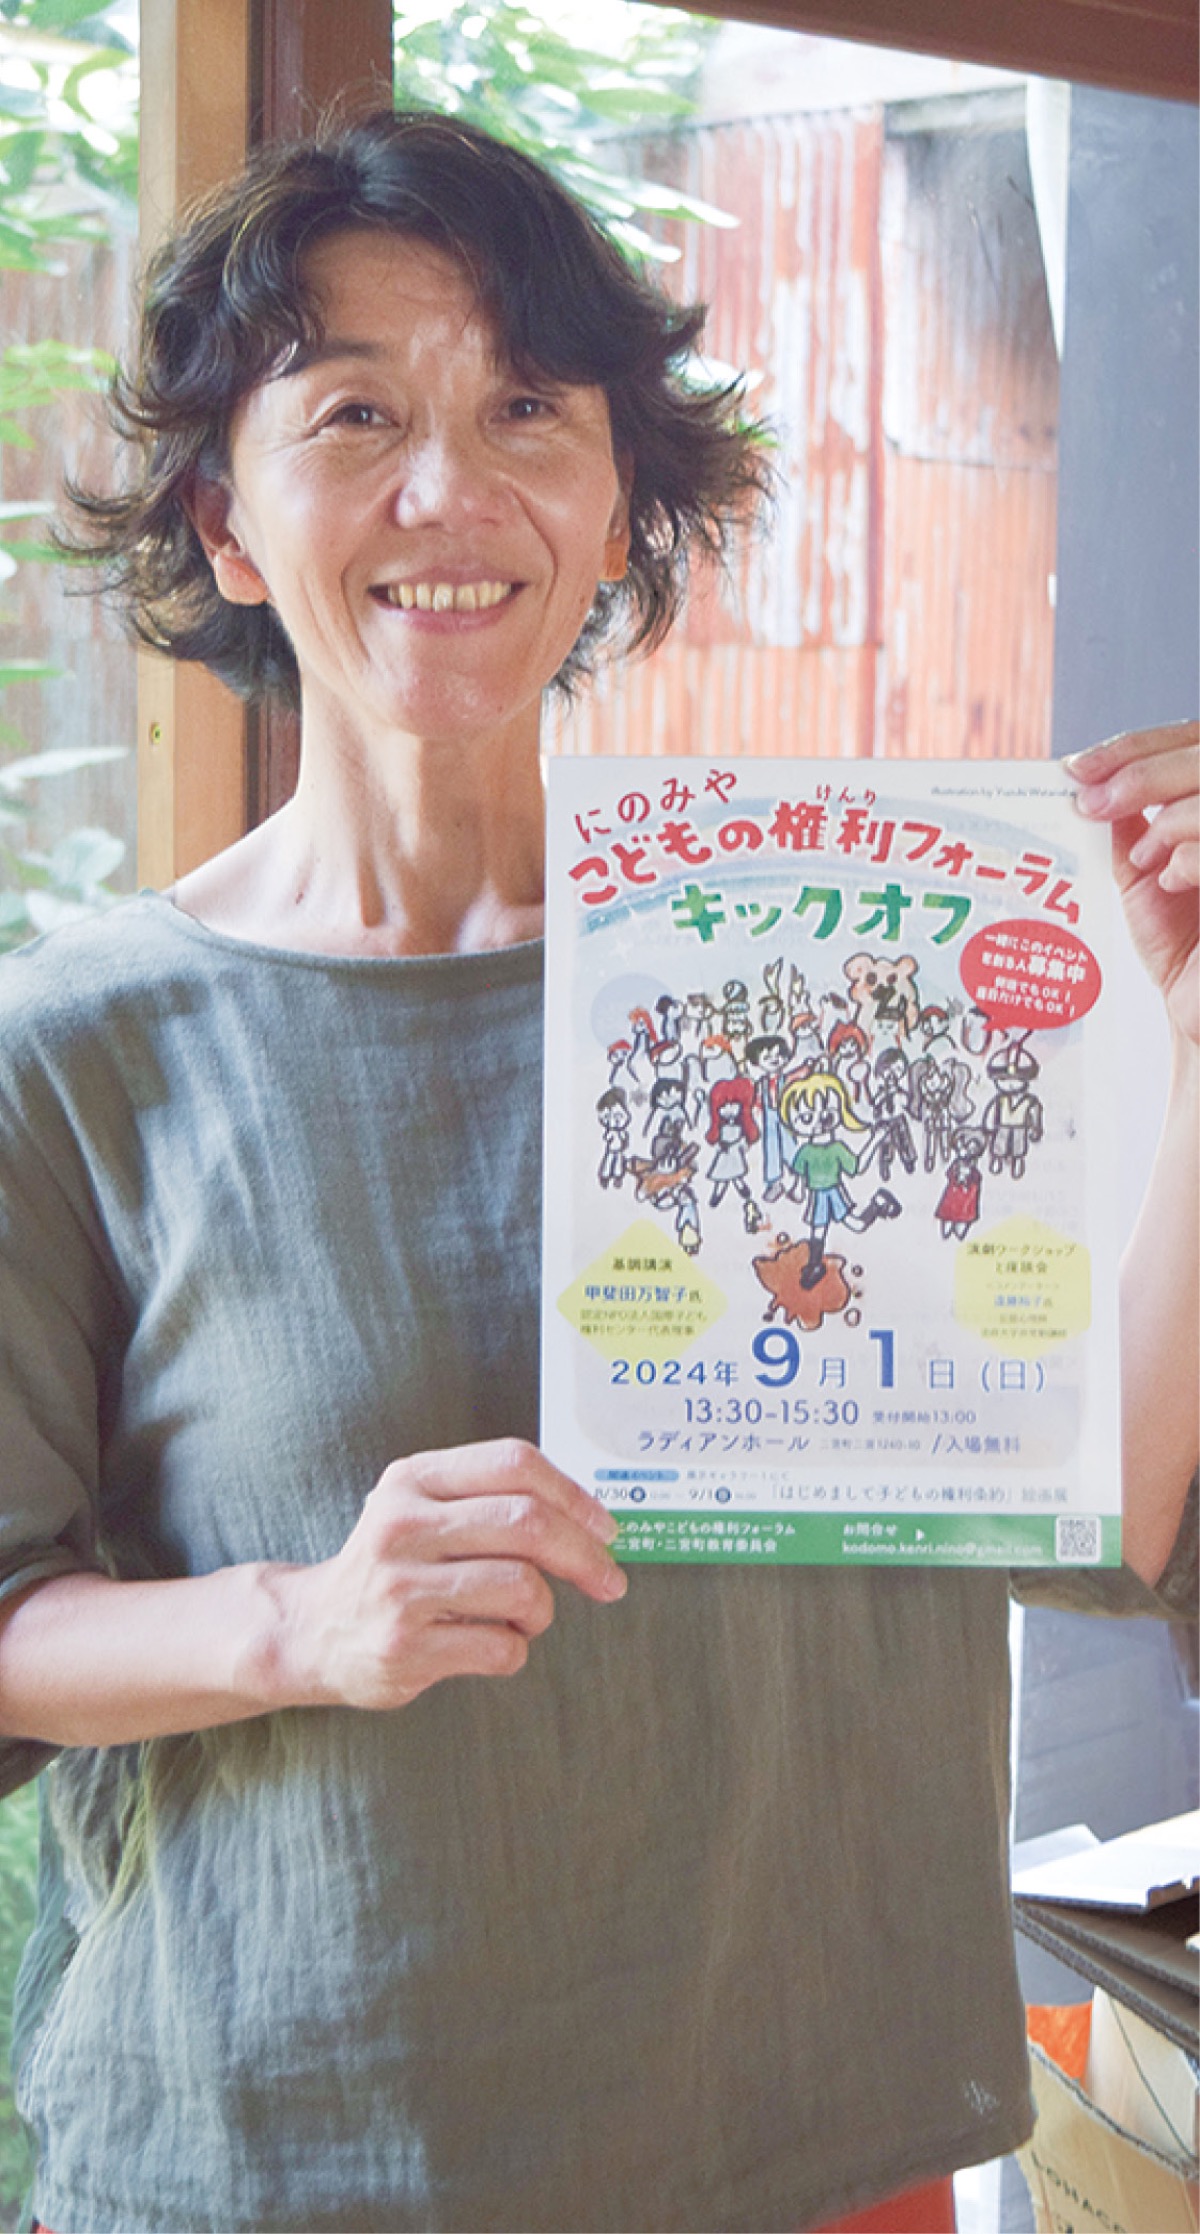 illustration by
にのみや
けんり
こどもの権利フォーラム
キックオフ
一緒にこのイベント
を創る人募集中
当日だけでもOK!
基調講演
甲斐田万智子氏
認定NPO法人国際子ども
権利センター代表理事
演劇ワークショップ
と座談会
遠藤
2024年9月1日(日)
13:30-15:30 受付開始13:00
ラディアンホール 二宮町二宮1240-10 /入場無料
関連イベント 展示ギャラリー1にて
8/30 9/1 「はじめまして子どもの権利条約」絵画展
このみやこどもの権利フォーラム
二宮町・二宮町教育委員会
お問合せ
kodomo.kenri.nino@gmail.com